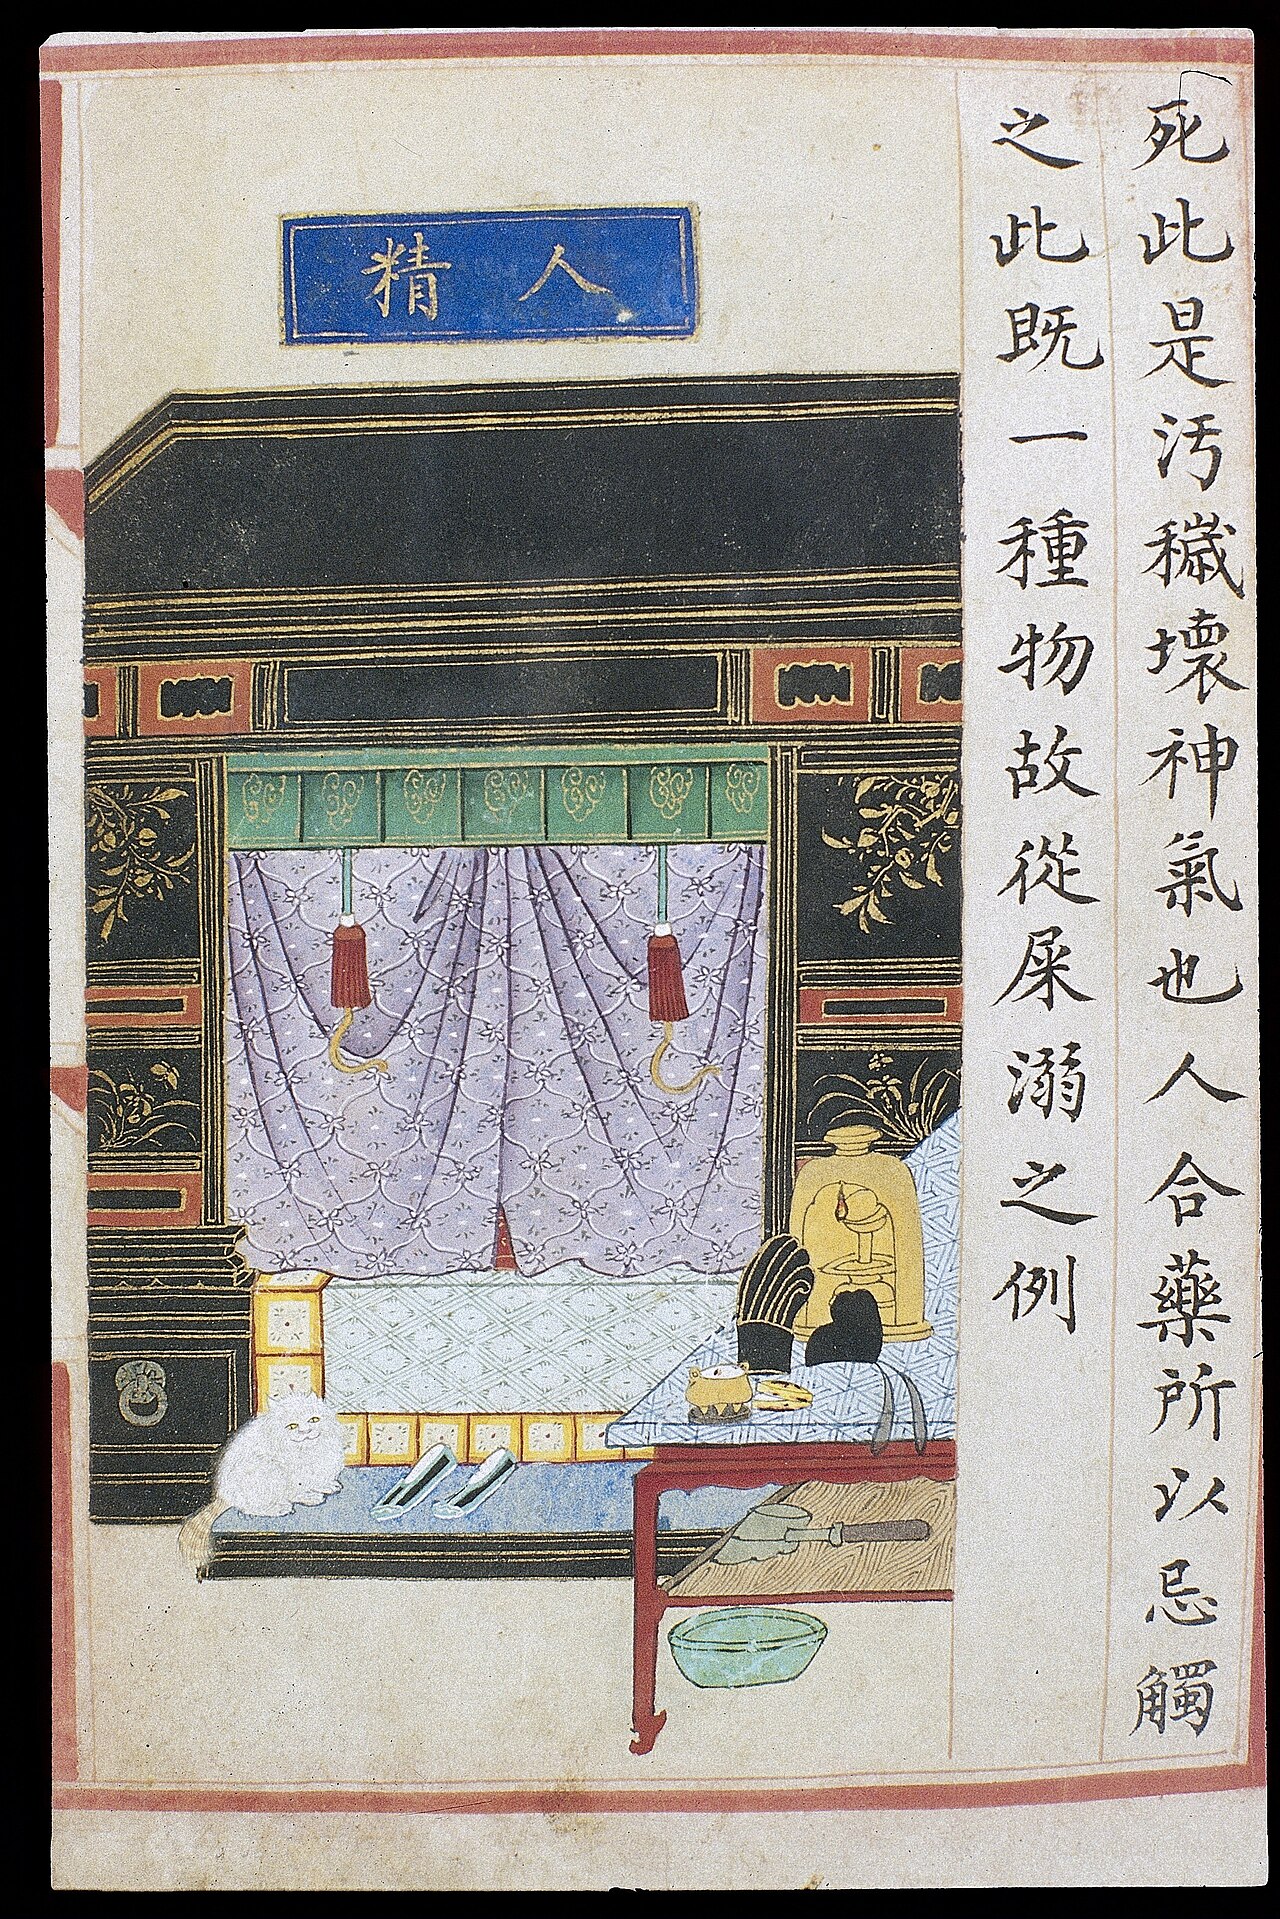 死此是汚穢壞神氣也人合藥所以忌觸
之此既一種物故從屎溺之例
人精